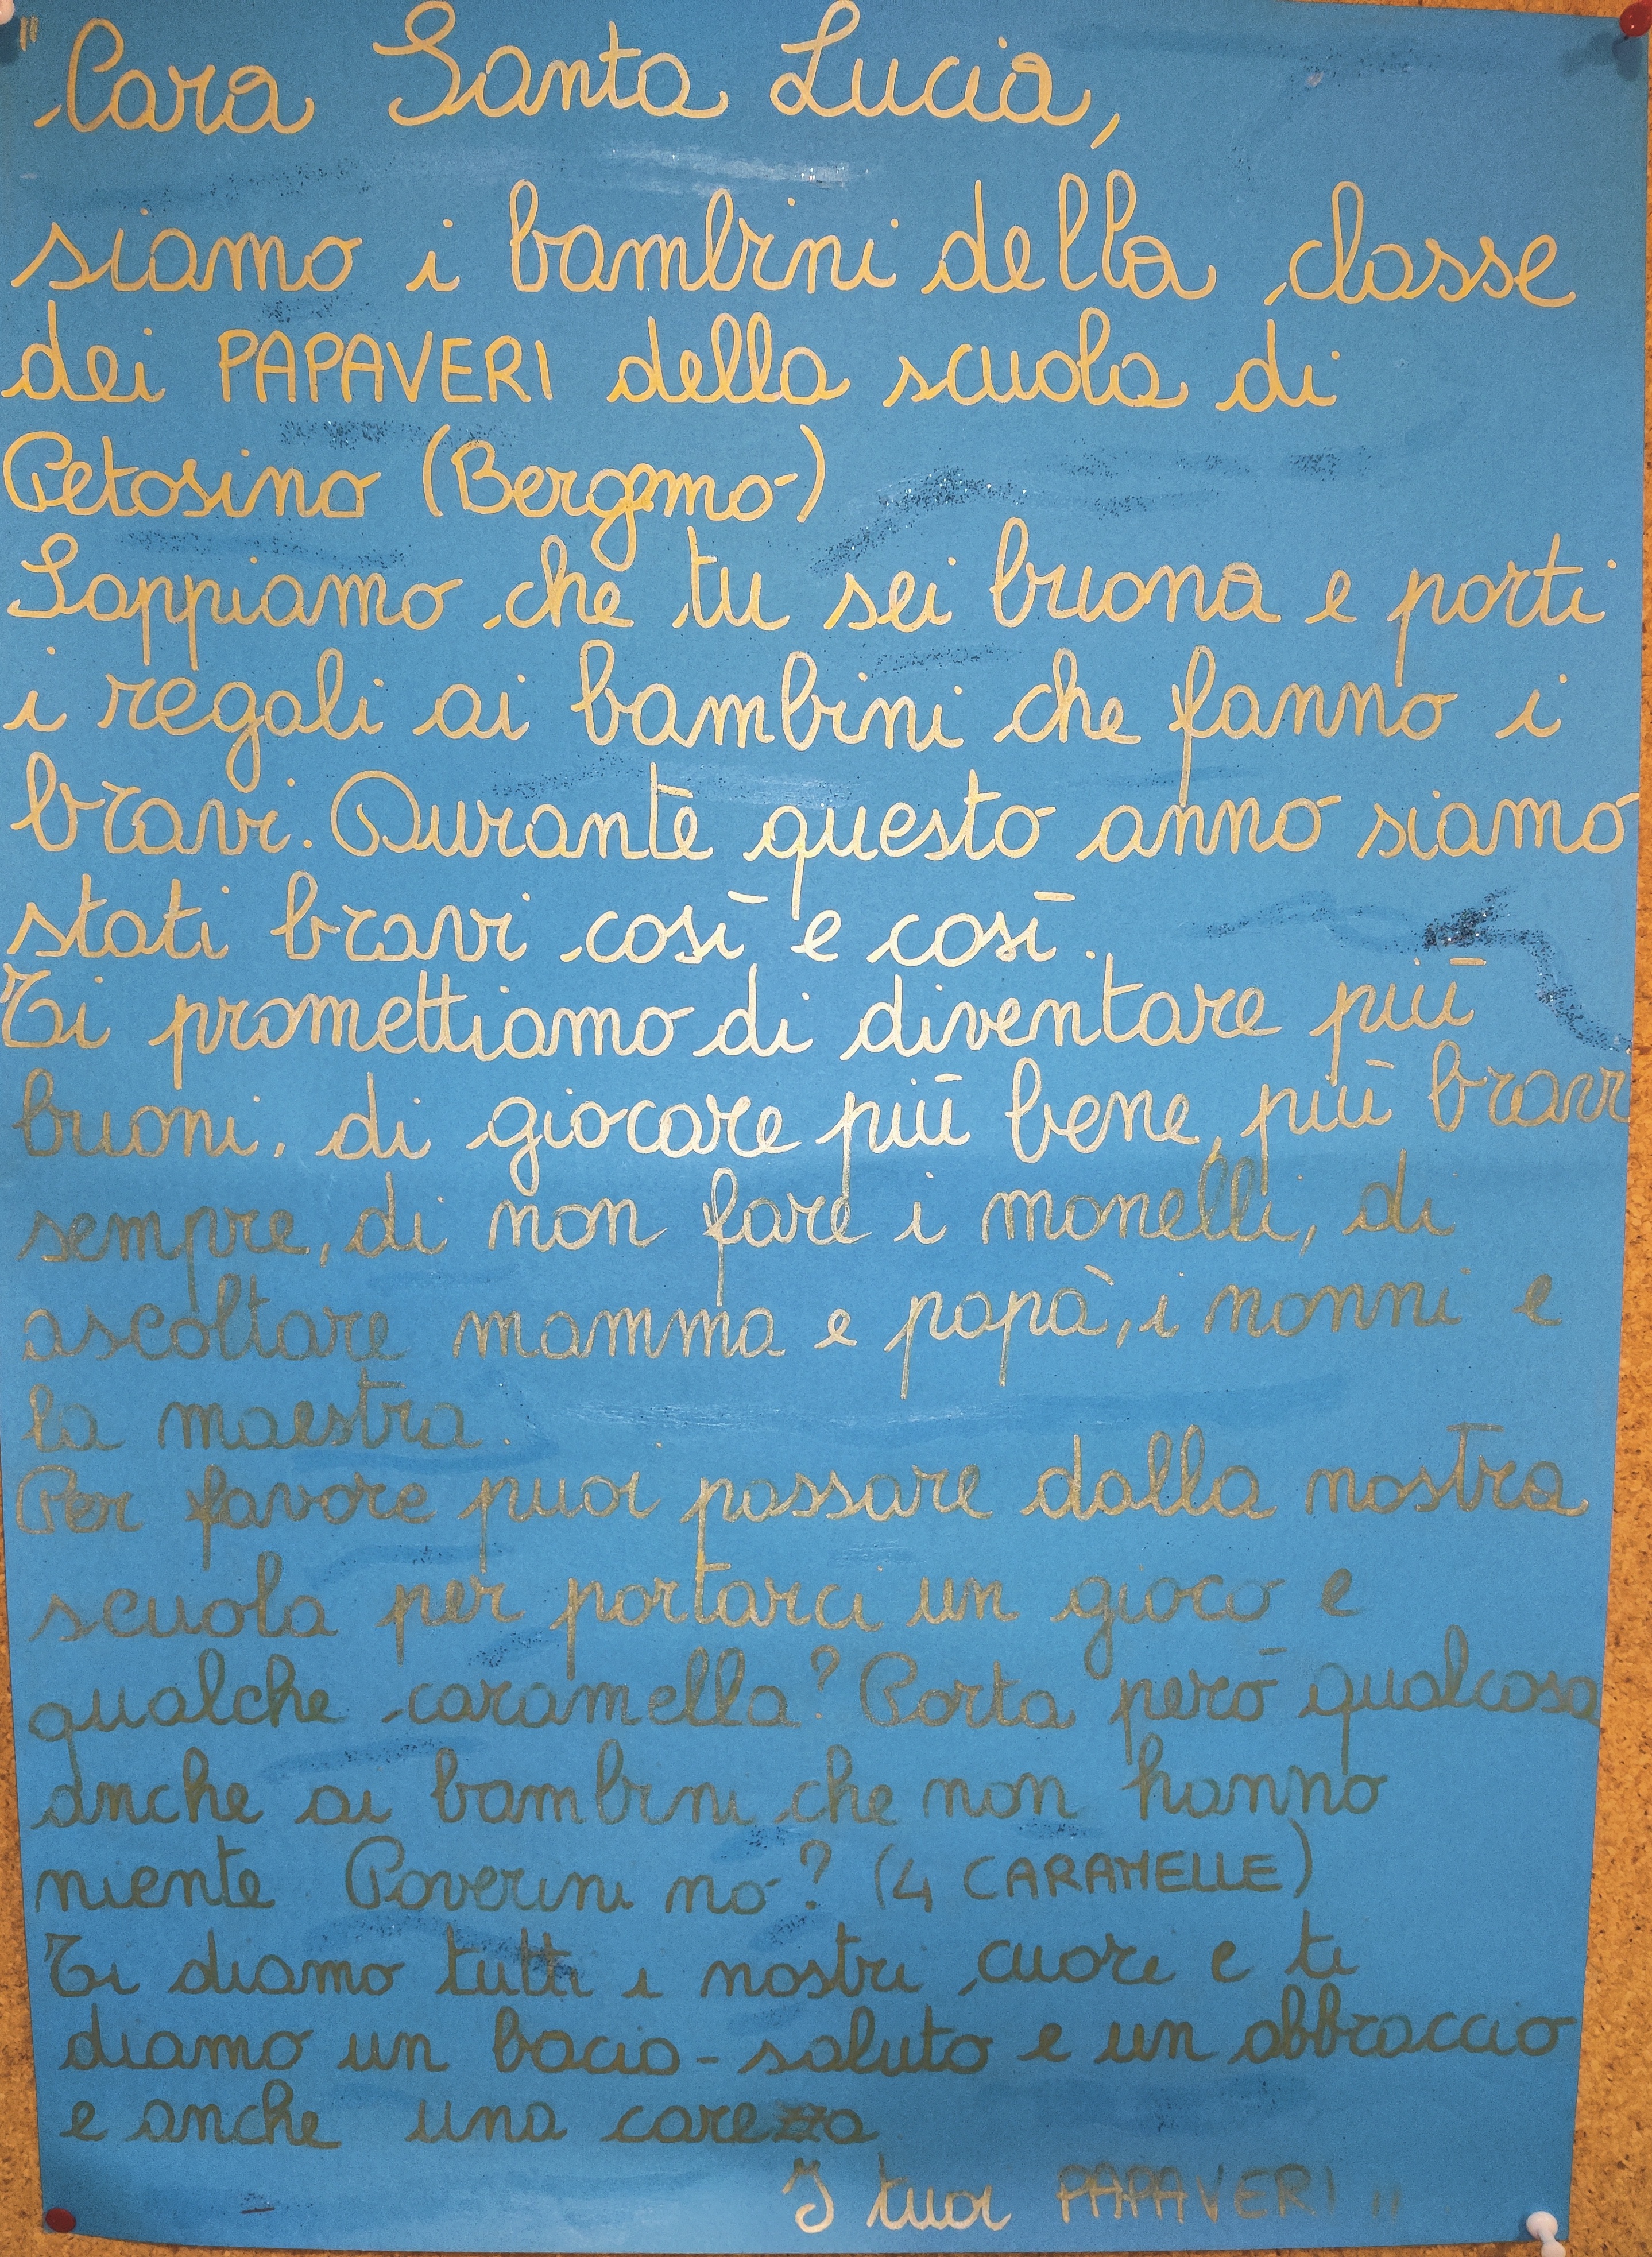 "Cara Santa Lucia,
siamo i bambini della classe
dei PAPAVERI della scuola di
Petosino (Bergamo)
Sappiamo che tu sei buona e porti
i regali ai bambini che fanno i
bravi. Durante questo anno siamo
stati bravi così e così.
Ti promettiamo di diventare più
buoni, di giocare più bene, più bravi
sempre, di non fare i monelli, di
ascoltare mamma e papà, i nonni e
la maestra.
Per favore puoi passare dalla nostra
scuola per portarci un gioco e
qualche caramella? Porta però qualcosa
anche ai bambini che non hanno
niente Poverini no? (4 CARAMELLE)
Ti diamo tutti i nostri cuori e ti
diamo un bacio-saluto e un abbraccio
e anche una carezza
I tuoi PAPAVERI"